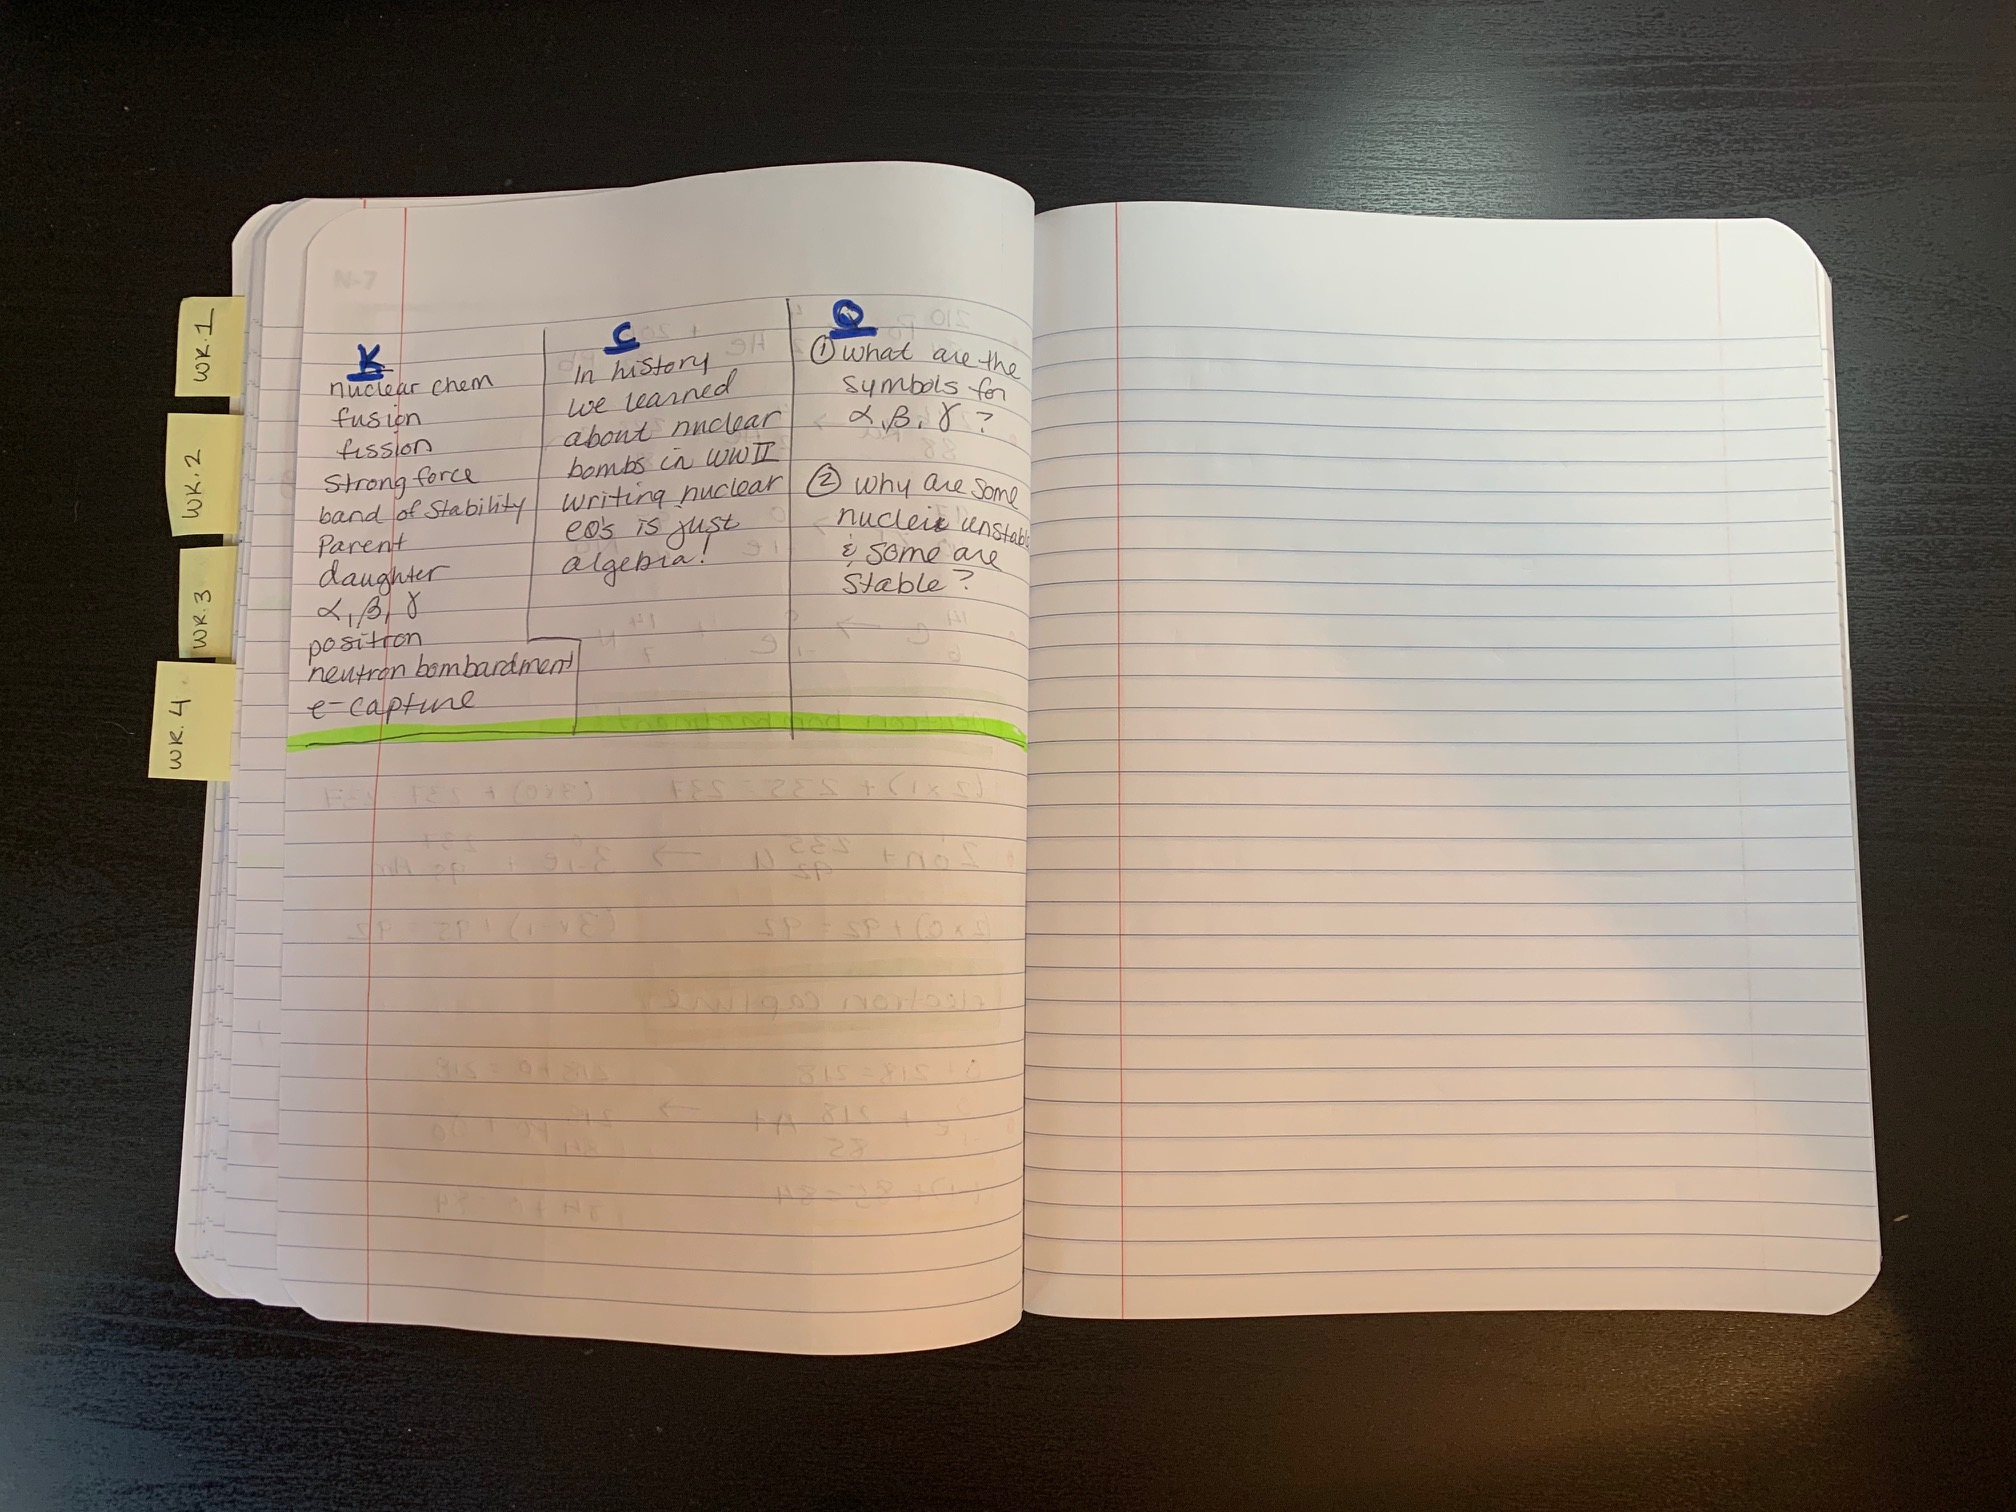 WK.1
WK.2
WK.3
WK.4
K
nuclear chem
fusion
fission
Strong force
band of stability
Parent
daughter
α, β, γ
positron
neutron bombardment
e- capture
C
In history
we learned
about nuclear
bombs in WWII
writing nuclear
EQ's is just
algebra!
Q
① what are the
symbols for
α, β, γ ?
② why are some
nuclei unstable
& some are
stable?
N-7
neutron bombardment
(2x1) + 235 = 237
(2x0) + 92 = 92
electron capture